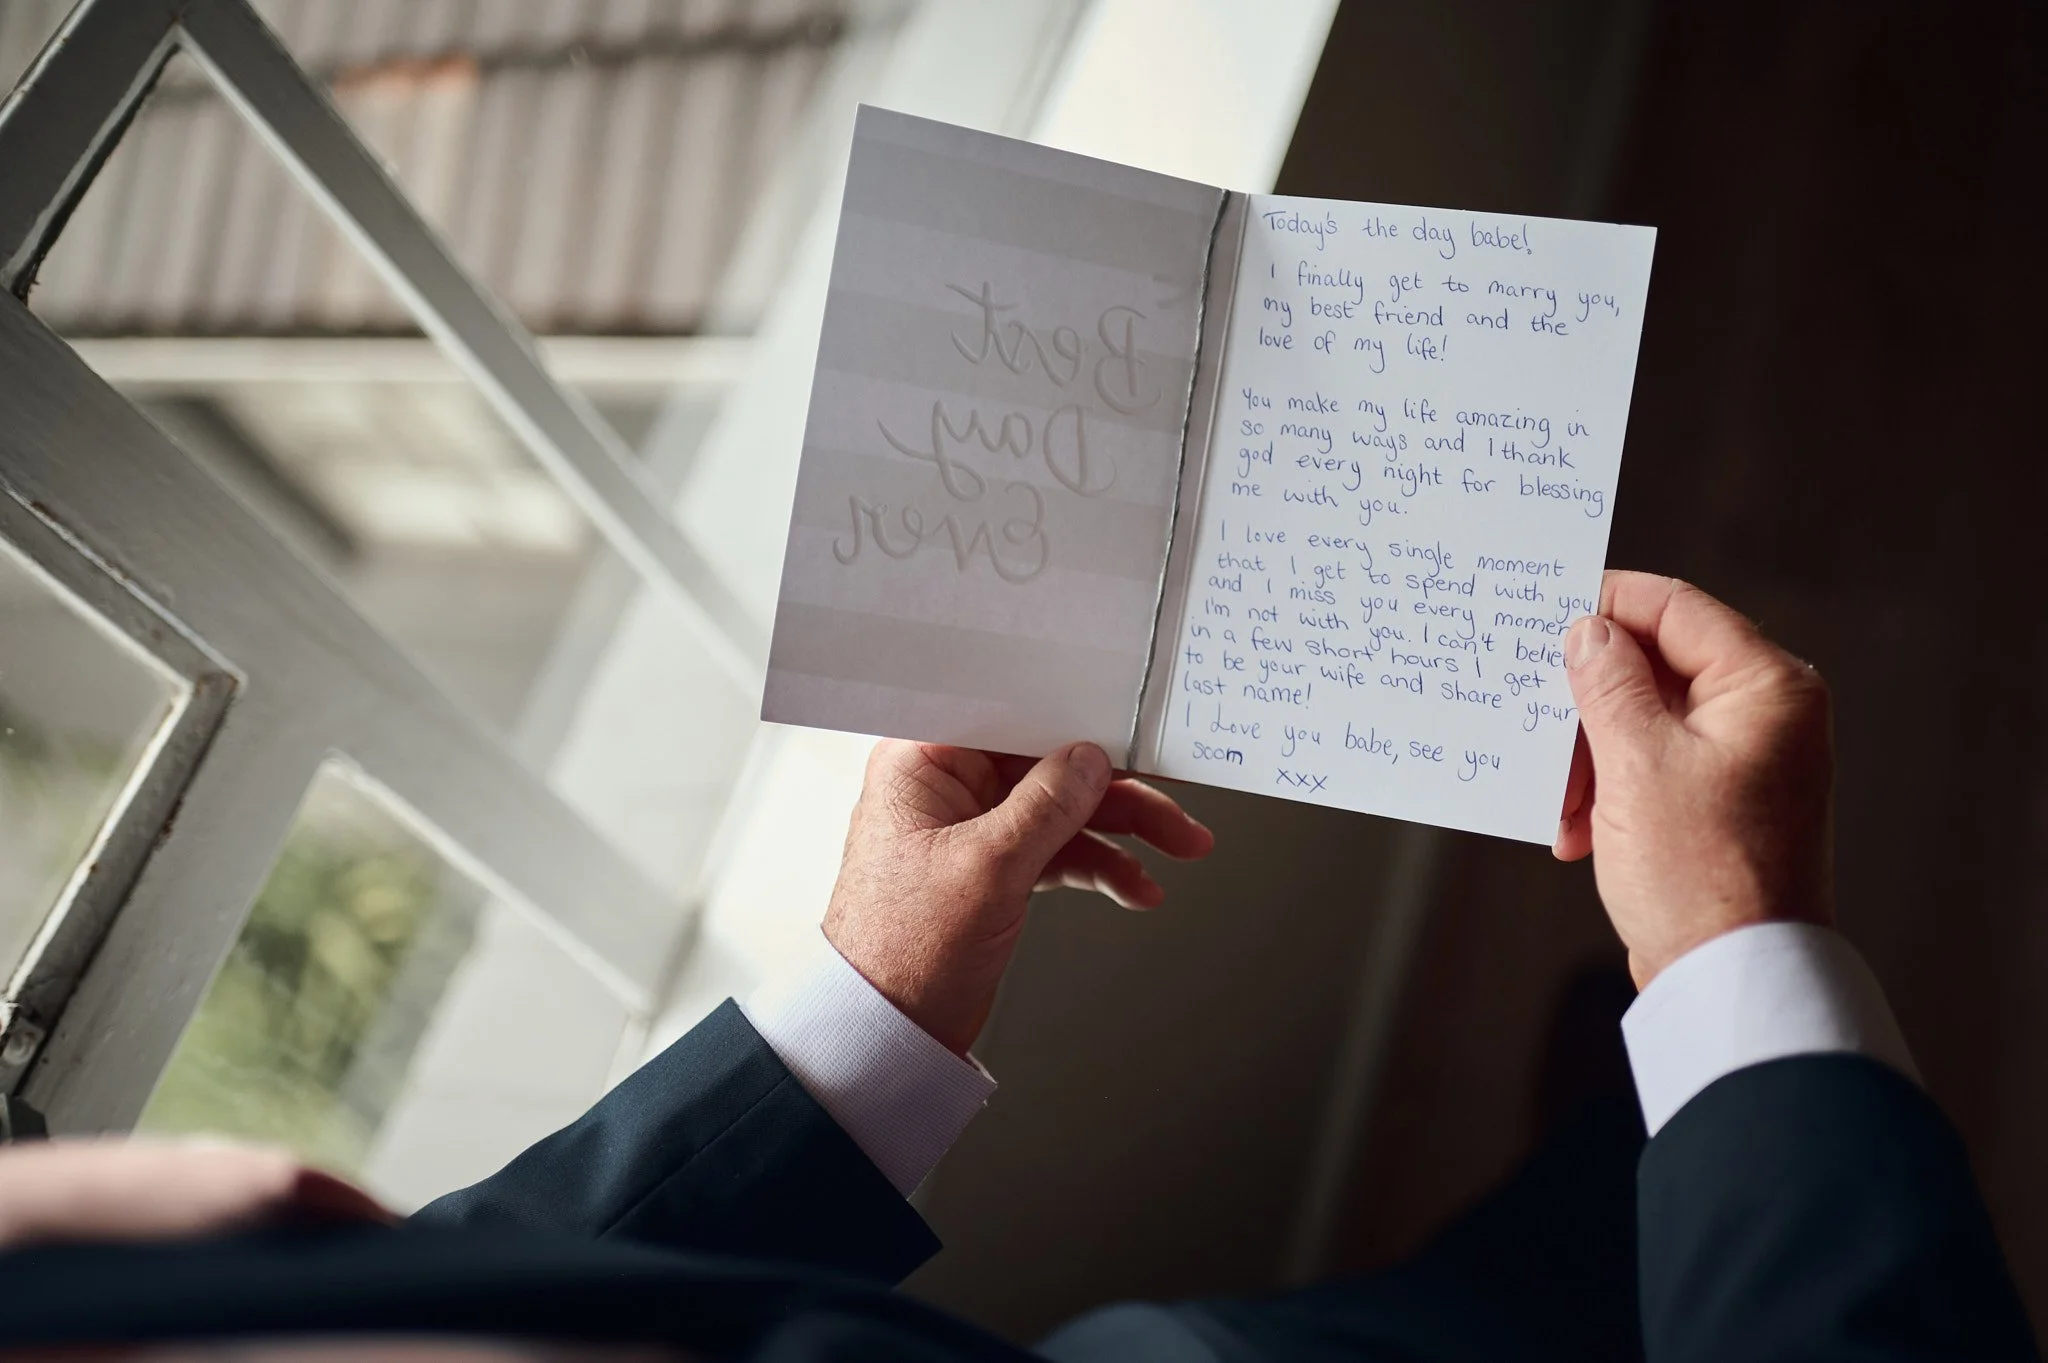 Best
Day
Ever
Today's the day babe!
I finally get to marry you,
my best friend and the
love of my life!
You make my life amazing in
so many ways and I thank
god every night for blessing
me with you.
I love every single moment
that I get to spend with you
and I miss you every momen
I'm not with you. I can't belie
in a few short hours I get
to be your wife and share your
last name!
I Love you babe, see you
soom
xxx